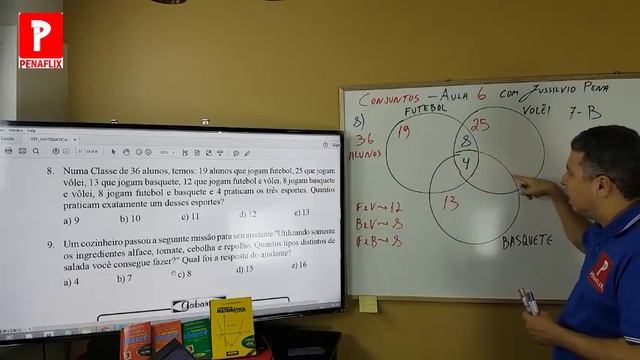 PENAFLIX
8. Numa Classe de 36 alunos, temos: 19 alunos que jogam futebol, 25 que jogam
vôlei, 13 que jogam basquete, 12 que jogam futebol e vôlei, 8 jogam basquete
e vôlei, 8 jogam futebol e basquete e 4 praticam os três esportes. Quantos
praticam exatamente um desses esportes?
a) 9 b) 10 c) 11 d) 12 e) 13
9. Um cozinheiro passou a seguinte missão para seu ajudante "Utilizando somente
os ingredientes alface, tomate, cebolha e repolho. Quantos tipos distintos de
salada você consegue fazer?" Qual foi a resposta do ajudante?
a) 4 b) 7 c) 8 d) 15 e) 16
MATEMÁTICA
CONJUNTOS - AULA 6 COM JUSSILVIO PENA
FUTEBOL VOLÊI 7-B
8)
36 19 25
ALUNOS 8
4
13
FeV→12
BeV→8
FeB→8
BASQUETE
PENAFLIX